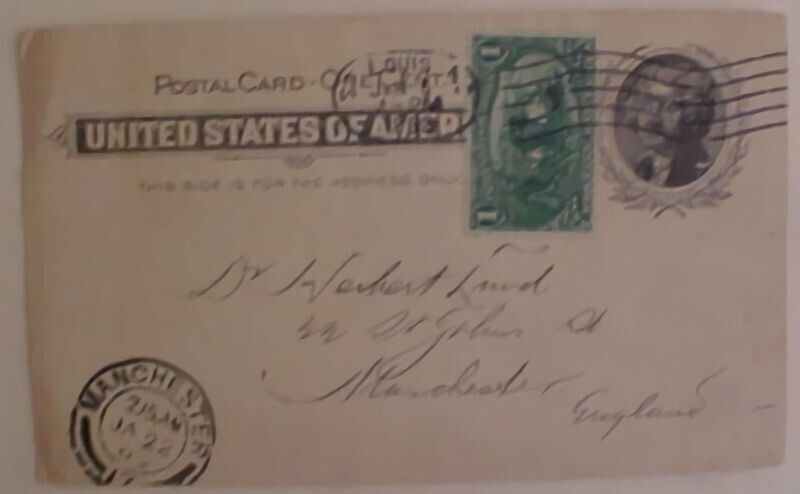 POSTAL CARD - ONE CENT.
LOUIS
UNITED STATES OF AMER
THIS SIDE IS FOR THE ADDRESS ONLY.
1
1
Dr Herbert Lund
22 St Johns St
Manchester
England
MANCHESTER
715 AM
JA 22